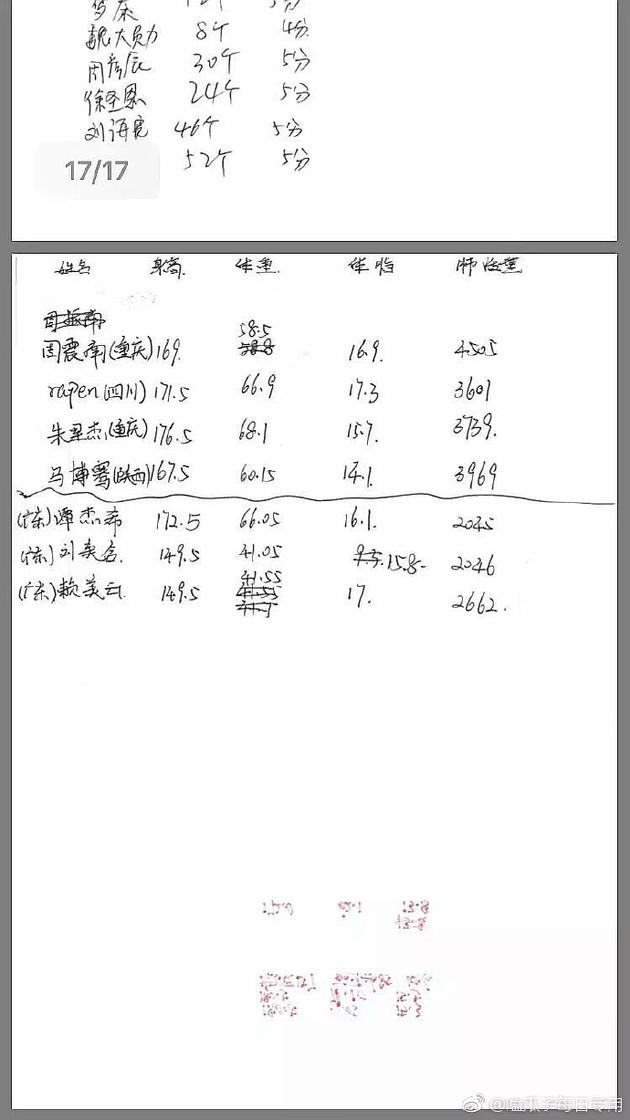 魏大勋 8个 4分
周彦辰 30个 5分
徐圣恩 24个 5分
46个 5分
52个 5分
17/17
姓名 身高 体重 体脂 肺活量
58.5
周震南(重庆) 169. 16.9. 4505
rapen(四川) 171.5 66.9 17.3 3601
朱星杰(重庆) 176.5 68.1 15.7. 3739.
马博骞(陕西) 167.5 60.15 14.1. 3969
(广东)谭杰希 172.5 66.05 16.1. 2045
(广东)刘 149.5 41.05 15.8- 2046
41.55
(广东)赖美云 149.5 17. 2662.
@嗑瓜子每日专用